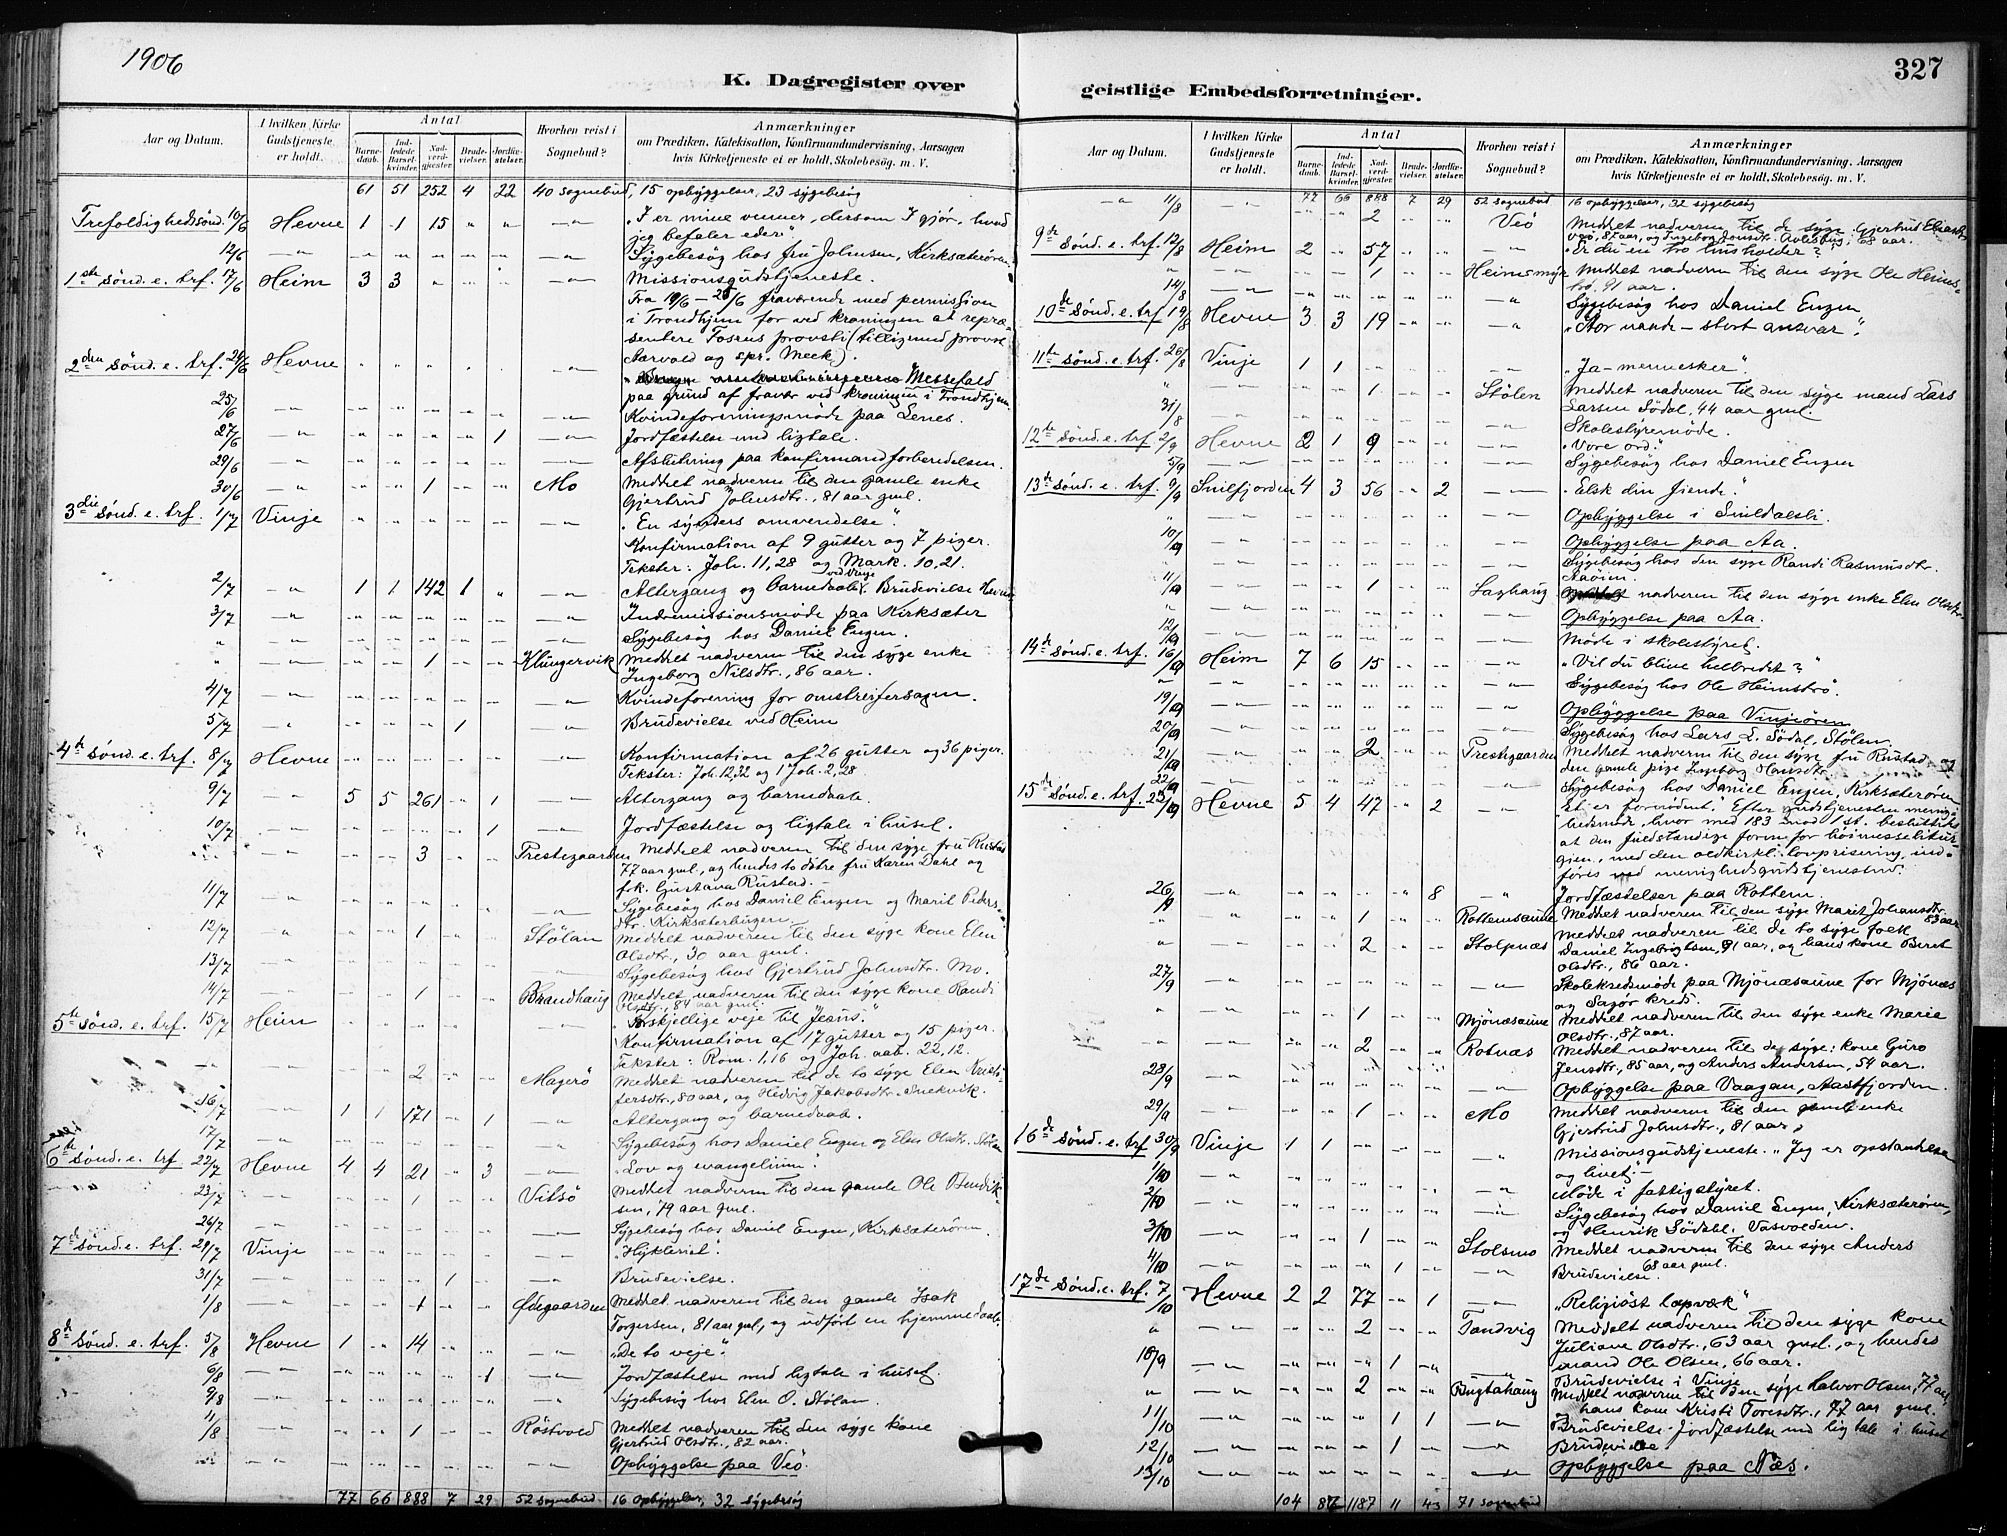 1906
K. Dagregister over
Aar og Datum.
I hvilken Kirke Gudstjeneste er holdt.
Antal
Barnedaab.
Indledede Barselkvinder.
Nadverdgjester.
Brudevielser.
Jordfæstelser.
Hvorhen reist i Sognebud?
Anmærkninger
om Prædiken, Katekisation, Konfirmandundervisning, Aarsagen
hvis Kirketjeneste ei er holdt, Skolebesøg. m. V.
61 51 252 4 22 40 sognebud, 15 opbyggelser, 23 sygebesøg
Trefoldighedssønd. 10/6 Hevne 1 1 15 " " —"— "I er mine venner, dersom I gjør, hvad
jeg befaler eder".
12/6 —"— Sygebesøg hos fru Johnsen, Kirksæterøren
1ste sønd. e. trf. 17/6 Heim 3 3 " " " —"— Missionsgudstjeneste.
fraværende med permission
i Trondhjem for ved kroningen at repræ-
sentere Fosens provsti (tilligemed provst
Aarvold og spr. Meek).
2den sønd. e. trf. 24/6 Hevne " " " " " —"— Messefald
paa grund af fravær ved kroningen i Trondhjem.
25/6 —"— Kvindeforeningsmøde paa Lenes.
27/6 —"— 1 —"— Jordfæstelse med ligtale.
29/6 —"— Afslutning paa konfirmandforberedelsen.
30/6 —"— 1 Mo Meddelt nadveren til den gamle enke
Gjertrud Johnsdtr., 81 aar gml.
3die sønd. e. trf. 1/7 Vinje —"— "En synders omvendelse".
Konfirmation af 9 gutter og 7 piger.
Tekster: Joh. 11,28 og Mark. 10,21.
2/7 —"— 1 1 142 1 " —"— Altergang og barnedaab ved Vinje. Brudevielse Hevne
3/7 —"— Indremissionsmøde paa Kirksæter
" —"— Sygebesøg hos Daniel Engen.
" —"— 1 Klingervik Meddelt nadveren til den syge enke
Ingeborg Nilsdtr., 86 aar.
4/7 —"— Kvindeforening for omstreifersagen.
5/7 —"— 1 —"— Brudevielse ved Heim
4de sønd. e. trf. 8/7 Hevne —"— Konfirmation af 26 gutter og 36 piger.
Tekster: Joh. 12,32 og 1 Joh. 2,28
9/7 5 5 261 " 1 —"— Altergang og barnedaab.
10/7 1 —"— Jordfæstelse og ligtale i huset.
" 3 Prestegaarden Meddelt nadveren til den syge fru Rustad
77 aar gml., og hendes to døtre fru Karen Dahl og
frk. Gustava Rustad.
11/7 —"— Sygebesøg hos Daniel Engen og Marit Peders-
dtr. Kirksæterhugen.
12/7 1 Stølan Meddelt nadveren til den syge kone Elen
Olsdtr., 30 aar gml.
13/7 —"— Sygebesøg hos Gjertrud Johnsdtr. Mo.
14/7 1 Brandhaug Meddelt nadveren til den syge kone Randi
Olsdtr., 84 aar gml.
5te sønd. e. trf. 15/7 Heim —"— "Forskjellige veje til Jesus."
Konfirmation af 17 gutter og 15 piger.
Tekster: Rom. 1,16 og Joh. aab. 22,12.
—"— 2 Magerø Meddelt nadveren til de to syge Elen Kristo-
fersdtr., 80 aar, og Hedvig Jakobsdtr. Snekvik.
16/7 —"— 1 1 171 " 1 —"— Altergang og barnedaab.
17/7 —"— Sygebesøg hos Daniel Engen og Elen Olsdtr. Stølan
6te sønd. e. trf 22/7 Hevne 4 4 21 " 3 —"— "Lov og evangelium".
23/7 1 Vitsø Meddelt nadveren til den gamle Ole Bendrik-
sen, 79 aar gml.
26/7 —"— Sygebesøg hos Daniel Engen, Kirksæterøren.
7de sønd. e. trf. 29/7 Vinje —"— "Hykleriet".
31/7 —"— 1 —"— Brudevielse.
1/8 —"— 1 Ødegaarden Meddelt nadveren til den gamle Isak
Torgersen, 81 aar gml, og udført en hjemmedaab.
8de sønd. e. trf. 5/8 Hevne 1 " 14 —"— "De to veje".
6/8 —"— 1 —"— Jordfæstelse med ligtale i huset.
9/8 —"— Sygebesøg hos Elen O. Stølan.
11/8 —"— 1 Røstvold Meddelt nadveren til den syge kone
Gjertrud Olsdtr., 82 aar.
Opbyggelse paa Veø.
77 66 888 7 29 52 sognebud 16 opbyggelser, 32 sygebesøg
327
geistlige Embedsforretninger.
Aar og Datum.
I hvilken Kirke Gudstjeneste er holdt.
Antal
Barnedaab.
Indledede Barselkvinder.
Nadverdgjester.
Brudevielser.
Jordfæstelser.
Hvorhen reist i Sognebud?
Anmærkninger
om Prædiken, Katekisation, Konfirmandundervisning, Aarsagen
hvis Kirketjeneste ei er holdt, Skolebesøg. m. V.
77 66 888 7 29 52 sognebud 16 opbyggelser, 32 sygebesøg
—"— 11/8 2 Veø Meddelt nadveren til de syge Gjertrud
Veø, 87 aar, og Ingeborg 68 aar.
9de sønd. e. trf. 12/8 Heim 2 " 57 —"— "Er du en tro husholder?"
" —"— 1 Heimsmyr Meddelt nadveren til den syge Ole Heims-
91 aar.
14/8 —"— Sygebesøg hos Daniel Engen
10de sønd. e. trf 19/8 Hevne 3 3 19 —"— "Stor naade – stort ansvar".
11te sønd. e. trf. 26/8 Vinje 1 1 "Ja-mennesker".
" —"— 1 Stølen Meddelt nadveren til den syge mand Lars
Larsen Sødal, 44 aar gml.
31/8 —"— Skolestyremøde.
12te sønd. e. trf 2/9 Hevne 2 1 9 —"— "Vore ord."
5/9 —"— Sygebesøg hos Daniel Engen
13de sønd. e. trf. 9/9 Snilfjorden 4 3 56 " 2 —"— "Elsk din fiende".
" —"— Opbyggelse i Snildalsli.
10/9 —"— Opbyggelse paa Aa.
" —"— Sygebesøg hos den syge Randi Rasmusdtr.
11/9 —"— 1 Saghaug nadveren til den syge enke Elen Olsdtr.
" —"— Opbyggelse paa Aa.
12/9 —"— Møde i skolestyret.
14de sønd. e. trf. 16/9 Heim 7 6 15 —"— "Vil du blive helbredet?"
" —"— Sygebesøg hos Ole Heimsbrø.
19/9 —"— Opbyggelse paa Vinjeøren
20/9 —"— Sygebesøg hos Lars L. Sødal, Stølen.
21/9 —"— 2 Prestegaarden Meddelt nadveren til den syge fru Rustad og
den gamle pige Ingeborg Hansdtr.
22/9 —"— Sygebesøg hos Daniel Engen, Kirksæterøren
15de sønd. e. trf. 23/9 Hevne 5 4 47 " 2 —"— "Et er fornødent." Efter gudstjenesten menig-
hedsmøde, hvor med 183 mod 1 st. besluttedes
at den fuldstændige form for høimesselitur-
gien, med den oldkirkl. lovprisning, ind-
føres ved menighedsgudstjenesten.
26/9 —"— 8 " Jordfæstelser paa Rottem.
" —"— 1 Rottemsaune Meddelt nadveren til den syge Marit Johansdtr. 83 aar
" 2 Stolpnæs Meddelt nadveren til de to syge folk
Daniel Ingebrigtsen, 91 aar, og hans kone Beret
Olsdtr., 86 aar.
27/9 —"— Skolekredsmøde paa Mjønæsaune for Mjønæs
og Sagør kreds.
" —"— 1 Mjønæsaune Meddelt nadveren til den syge enke Marie
Olsdtr., 87 aar.
" —"— 2 Rotnæs Meddelt nadveren til de syge: kone Guro
Jensdtr., 85 aar, og Anders Andersen, 54 aar.
28/9 —"— Opbyggelse paa Vaagan, Aastfjorden.
29/9 —"— 1 Mo Meddelt nadveren til den gamle enke
Gjertrud Johnsdtr., 81 aar.
16de sønd. e. trf 30/9 Vinje 1 1 " Missionsgudstjeneste. "Jeg er opstandelsen
og livet".
1/10 —"— Møde i fattigstyret.
2/10 —"— Sygebesøg hos Daniel Engen, Kirksæterøren,
og Henrik Sødahl, Vasvolden.
3/10 —"— 1 Stolsmo Meddelt nadveren til den syge Anders
68 aar gml.
4/10 —"— 1 " Brudevielse.
17de sønd. e. trf. 7/10 Hevne 2 2 77 " 1 —"— "Religiøst tapvæk"
" 2 Tandvig Meddelt nadveren til den syge kone
Juliane Olsdtr., 63 aar gml., og hendes
mand Ole Olsen, 66 aar.
10/9 —"— 1 Brudevielse i Vinje
" —"— 2 Bugtahaug Meddelt nadveren til den syge Halvor Olsen, 77 aar
hans kone Kristi Toresdtr., 77 aar gml.
11/10 —"— 1 1 —"— Brudevielse. Jordfæstelse med ligtale i huset
12/10 —"— 1 —"— Brudevielse
13/10 —"— Opbyggelse paa Næs.
104 87 1187 11 43 71 sognebud